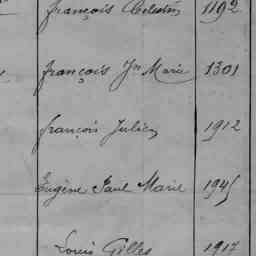 françois Celestin 1192
françois Jn Marie 1301
françois Julien 1912
Eugène Paul Marie 1945
Louis Gilles 1917